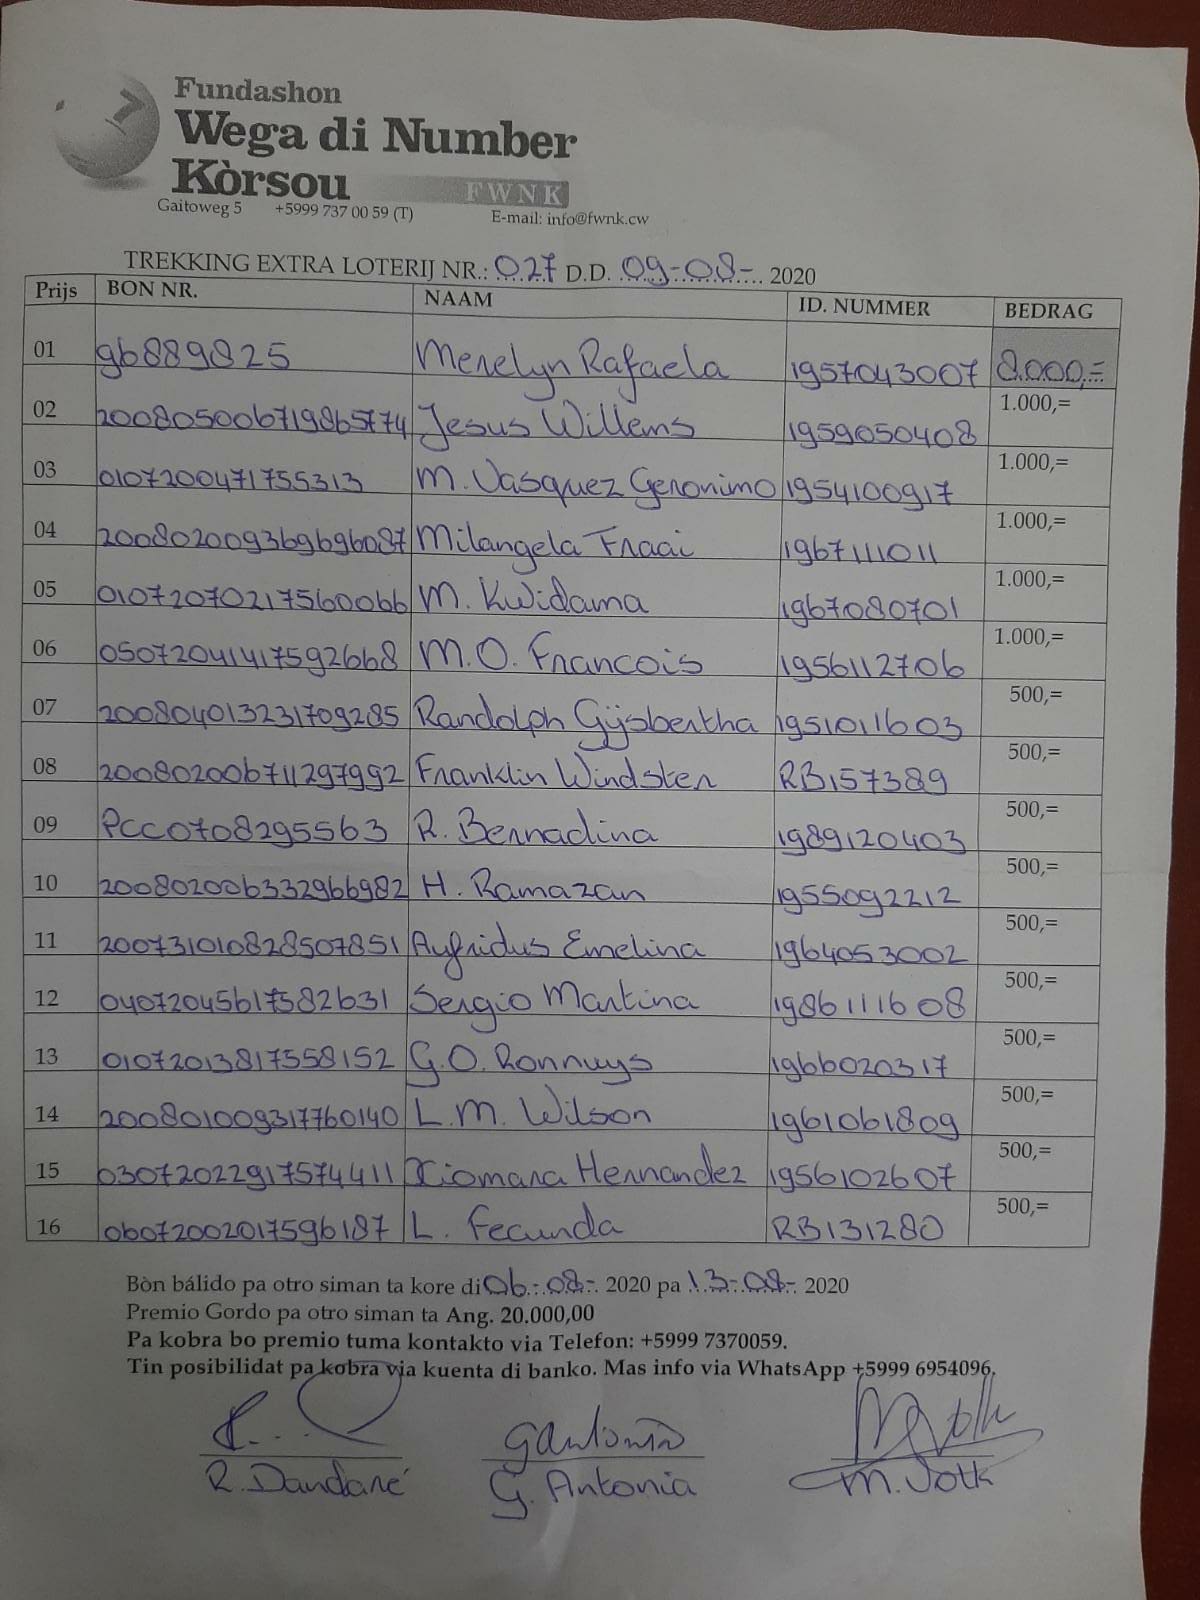 Fundashon
Wega di Number
Kòrsou
FWNK
Gaitoweg 5 +5999 737 00 59 (T) E-mail: info@fwnk.cw
TREKKING EXTRA LOTERIJ NR.: 027 D.D. 09-08- 2020
Prijs BON NR. NAAM ID. NUMMER BEDRAG
01 gb889825 Merelyn Rafaela 1957043007 8.000,=
02 200805006719865774 Jesus Willems 1959050408 1.000,=
03 0107200471755313 M. Vasquez Geronimo 1954100917 1.000,=
04 200802009369696087 Milangela Fraai 1967111011 1.000,=
05 01072070217560066 M. Kwidama 1967080701 1.000,=
06 05072041417592668 M.O. Francois 1956112706 1.000,=
07 2008040132317092​85 Randolph Gijsbertha 1951011603 500,=
08 200802006711297992 Franklin Windster RB157389 500,=
09 PCC0708295563 R. Bernadina 1989120403 500,=
10 200802006332966982 H. Ramazan 1955092212 500,=
11 200731010828507851 Aufridus Emelina 1964053002 500,=
12 04072045617582631 Sergio Martina 1986111608 500,=
13 01072013817558152 G.O. Ronnuys 1966020317 500,=
14 200801009317760140 L.M. Wilson 1961061809 500,=
15 03072022917574411 Xiomara Hernandez 1956102607 500,=
16 06072002017596187 L. Fecunda RB131280 500,=
Bòn bálido pa otro siman ta kore di 06-08- 2020 pa 13-08- 2020
Premio Gordo pa otro siman ta Ang. 20.000,00
Pa kobra bo premio tuma kontakto via Telefon: +5999 7370059.
Tin posibilidat pa kobra via kuenta di banko. Mas info via WhatsApp +5999 6954096.
gantonia
R. Dandaré G. Antonia M. Jolk